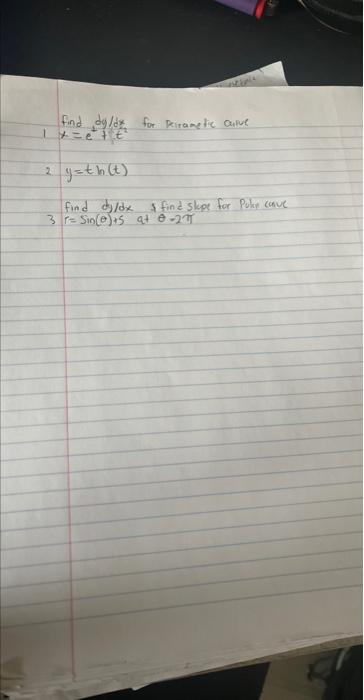 find dy/dx for Parametic curve
1 x = e^t + t^2
2 y = t ln(t)
find dy/dx & find slope for Polar curve
3 r = Sin(θ)+5 at θ = 2π